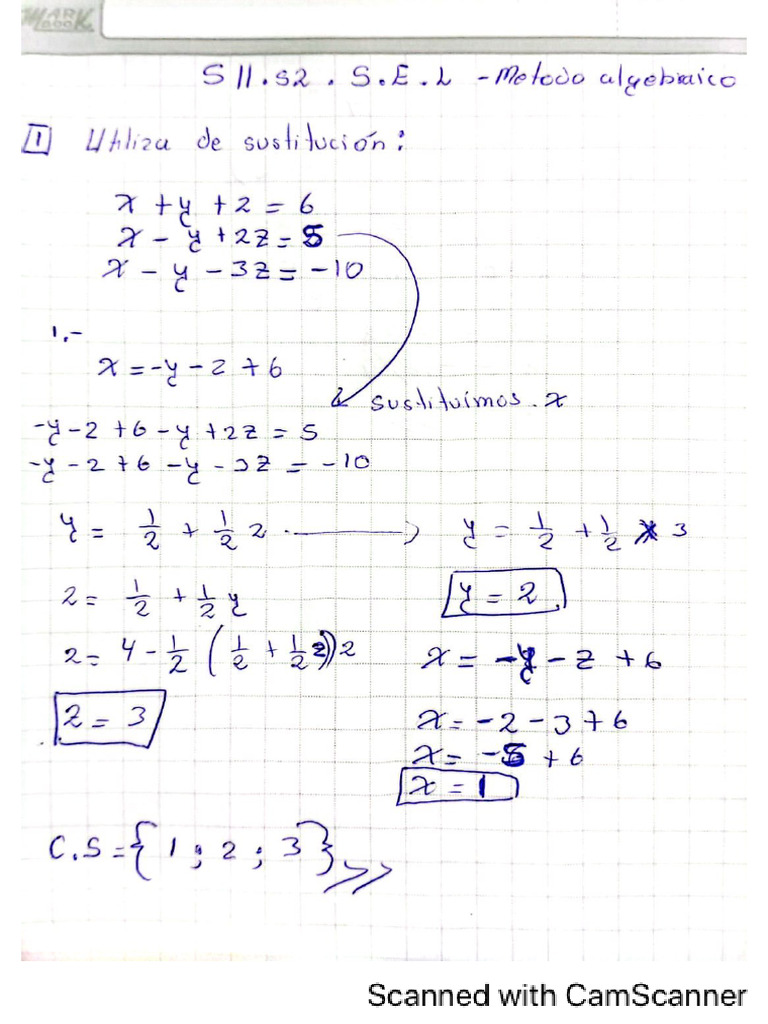 MARK BOOK
S11.S2 . S.E.L - Metodo algebraico
1 Utiliza de sustitución:
x + y + z = 6
x - y + 2z = 5
x - y - 3z = -10
1.-
x = -y - z + 6
sustituímos x
-y - z + 6 - y + 2z = 5
-y - z + 6 - y - 3z = -10
y = 1/2 + 1/2 z → y = 1/2 + 1/2 x 3
z = 1/2 + 1/2 y
y = 2
z = 4 - 1/2 (1/2 + 1/2 z) 2
x = -y - z + 6
z = 3
x = -2 - 3 + 6
x = -5 + 6
x = 1
C.S = {1 ; 2 ; 3}
Scanned with CamScanner